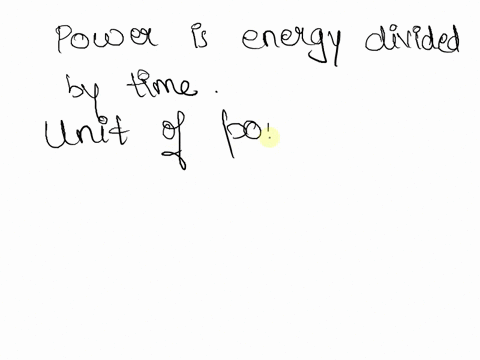 Power is energy divided
by time.
Unit of po